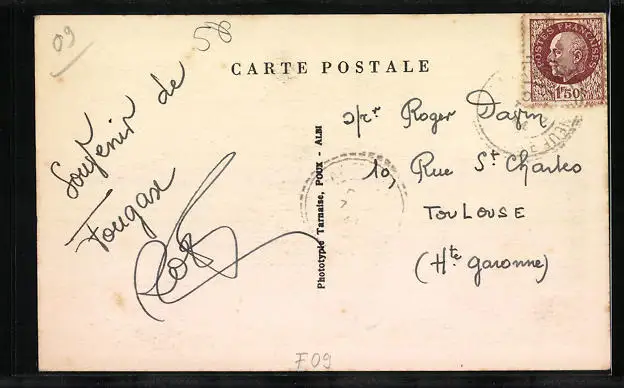 09
58
CARTE POSTALE
POSTES FRANÇAISES
1F50
Souvenir de
Fougax
Phototypie Tarnaise, POUX - ALBI
Mr Roger
10, Rue St Charles
TOULOUSE
(Hte Garonne)
F09